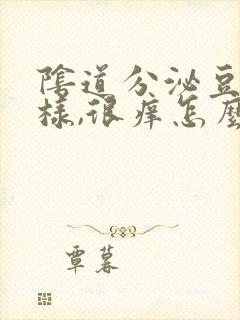 陰道分泌豆
樣,很痒怎麼
覃暮